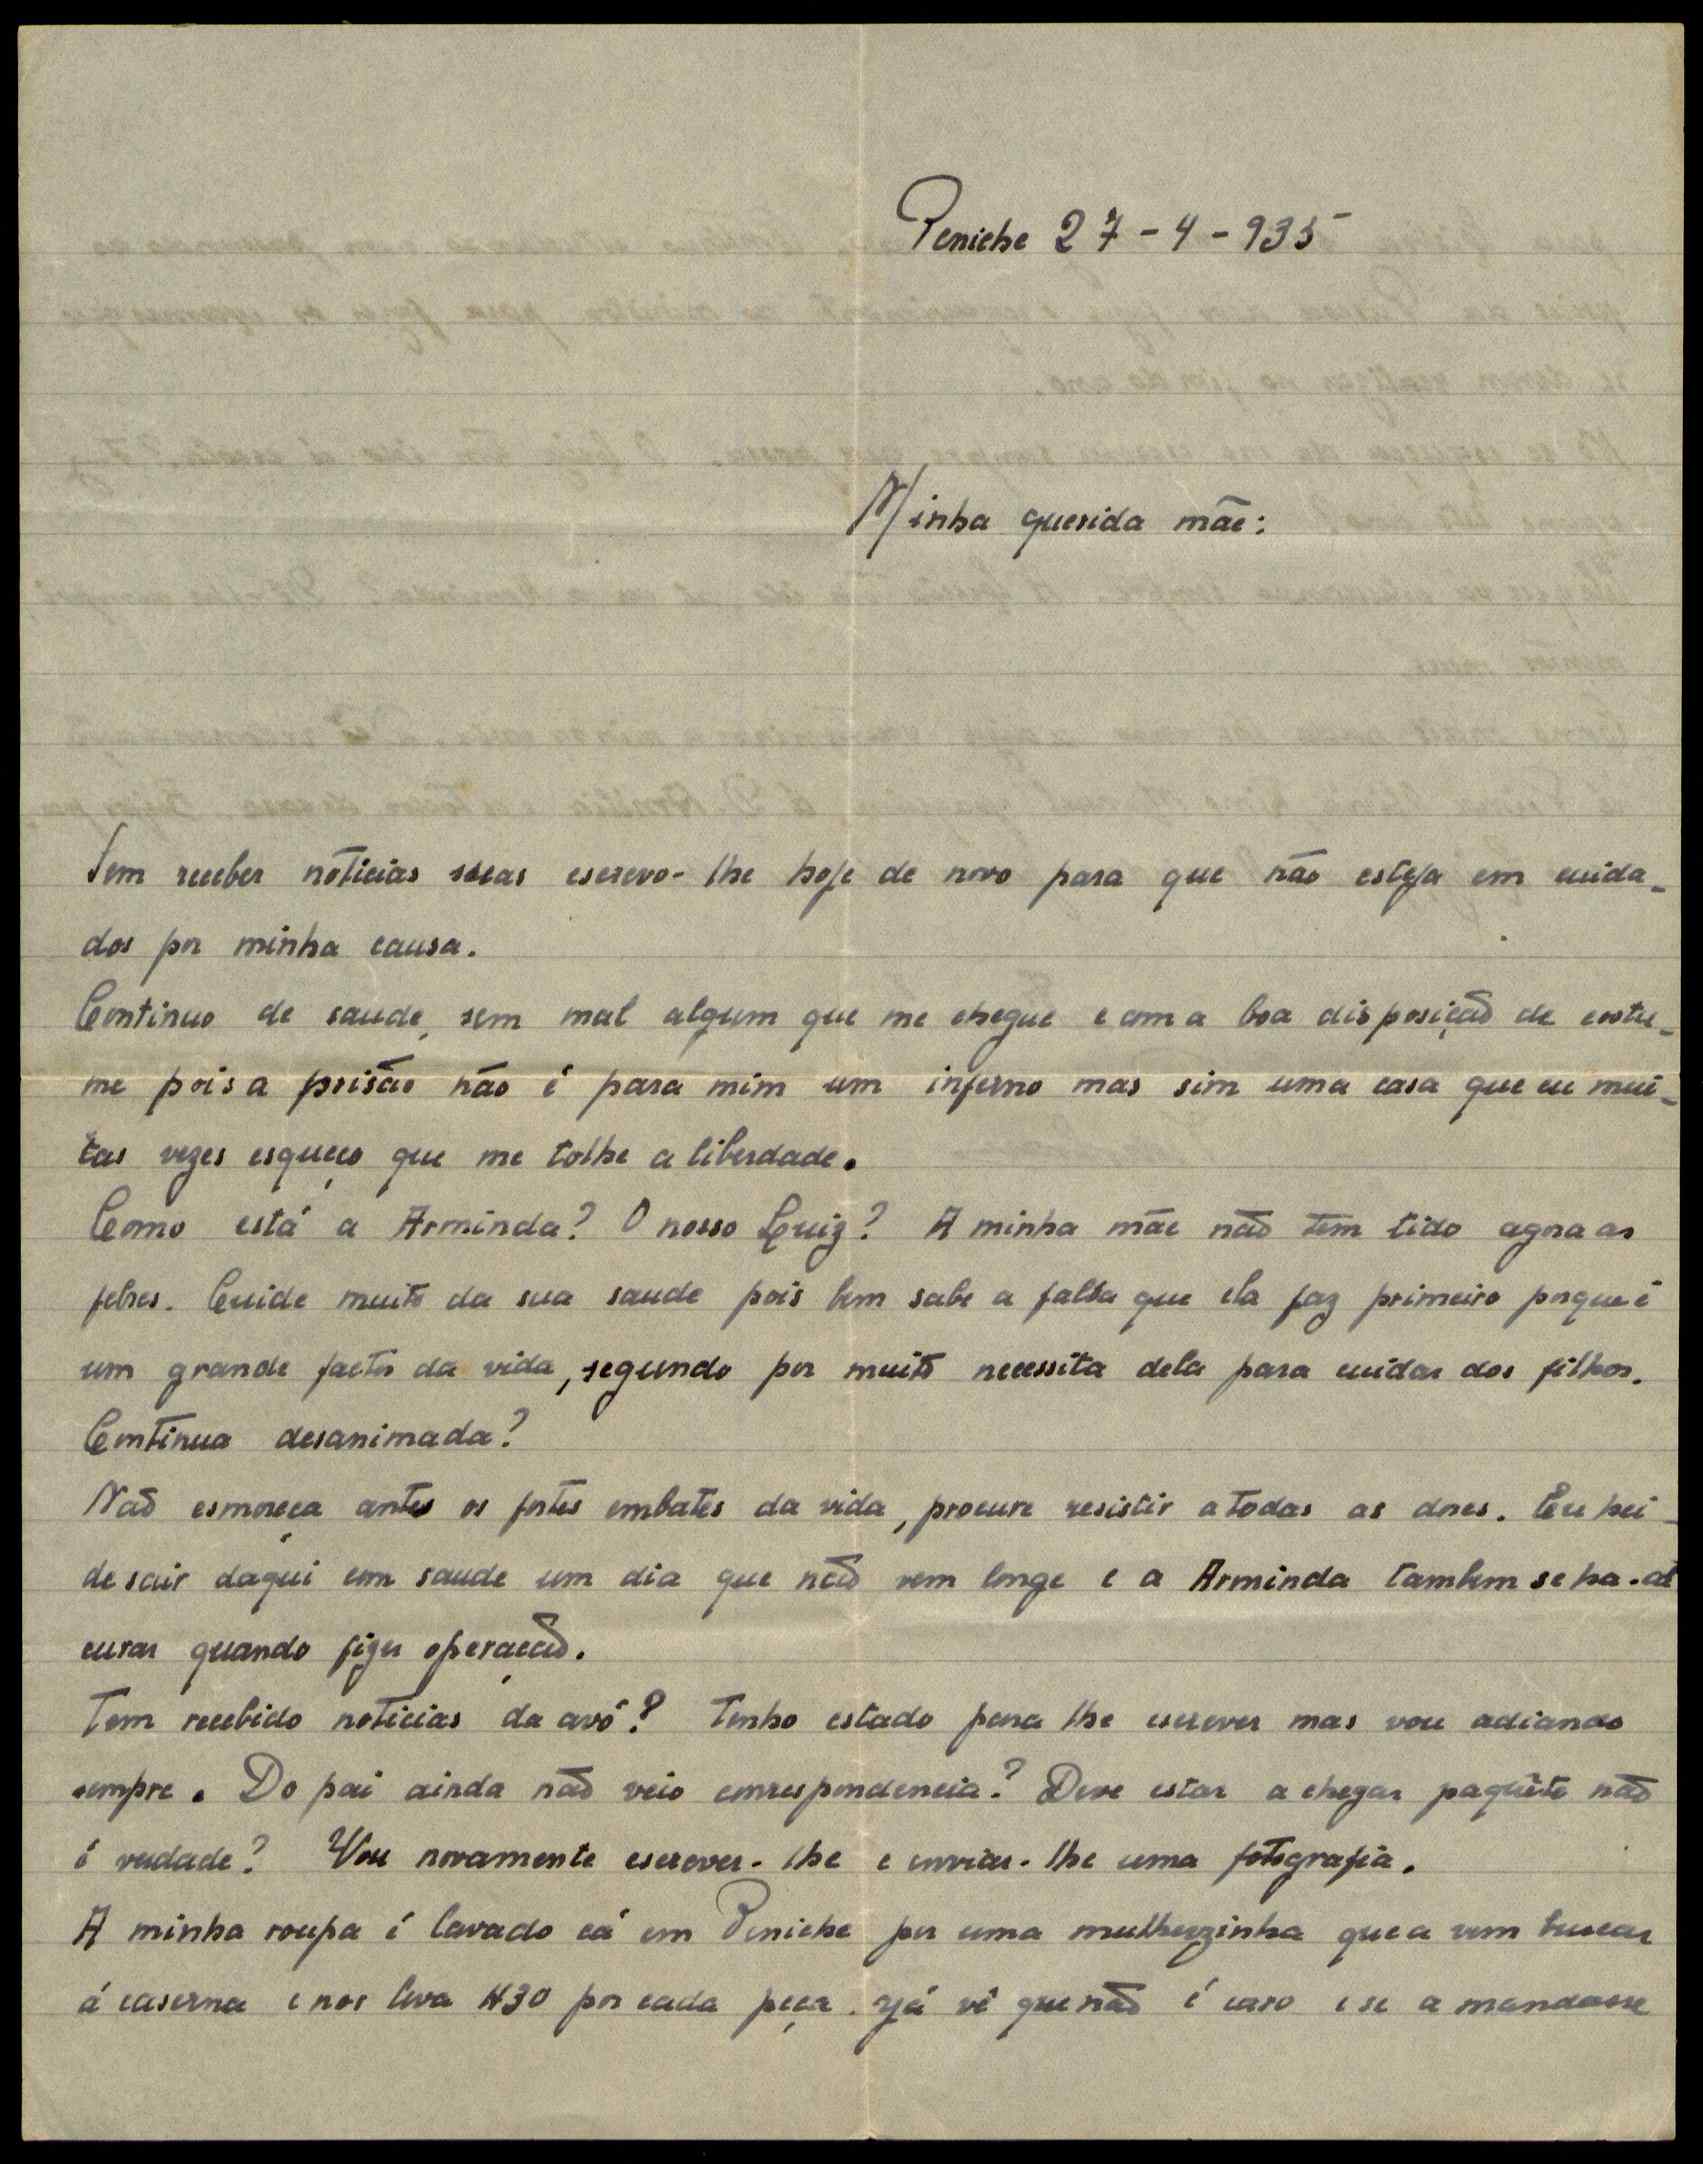 Peniche 27-4-935
Minha querida mãe:
Sem receber nóticias suas escrevo-lhe hoje de novo para que não esteja em cuida-
dos por minha causa.
Continuo de saude, sem mal algum que me chegue e com a boa disposição de costu-
me pois a prisão não é para mim um inferno mas sim uma casa que eu mui-
tas vezes esqueço que me tolhe a liberdade.
Como está a Arminda? O nosso Luiz? A minha mãe não tem tido agora as
febres. Cuide muito da sua saude pois bem sabe a falta que ela faz primeiro porque é
um grande factor da vida, segundo por muito necessita dela para cuidar dos filhos.
Continua desanimada?
Não esmoreça antes os fortes embates da vida, procure resistir a todas as dores. Eu hei-
de sair daqui com saude um dia que não vem longe e a Arminda tambem se ha-de
curar quando fizer operação.
Tem recebido noticias da avó? Tenho estado para lhe escrever mas vou adiando
sempre. Do pai ainda não veio correspondencia? Deve estar a chegar paquête não
é verdade? Vou novamente escrever-lhe e enviar-lhe uma fotografia.
A minha roupa é lavado cá em Peniche por uma mulherzinha que a vem buscar
á caserna e nos leva $30 por cada peça. Já vê que não é caro e se a mandasse